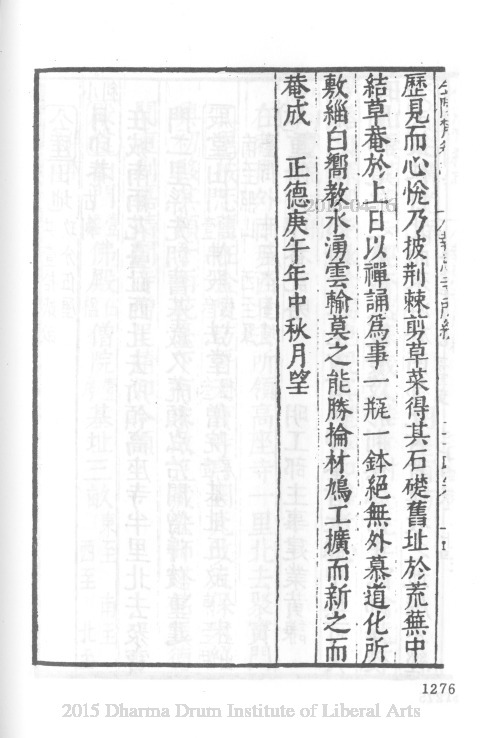 歷見而心悅乃披荆棘剪草菜得其石礎舊址於荒蕪中
結草菴於上日以禪誦為事一瓶一鉢絕無外慕道化所
敷緇白嚮教水湧雲輸莫之能勝掄材鳩工擴而新之而
菴成 正德庚午年中秋月望
1276
2015 Dharma Drum Institute of Liberal Arts